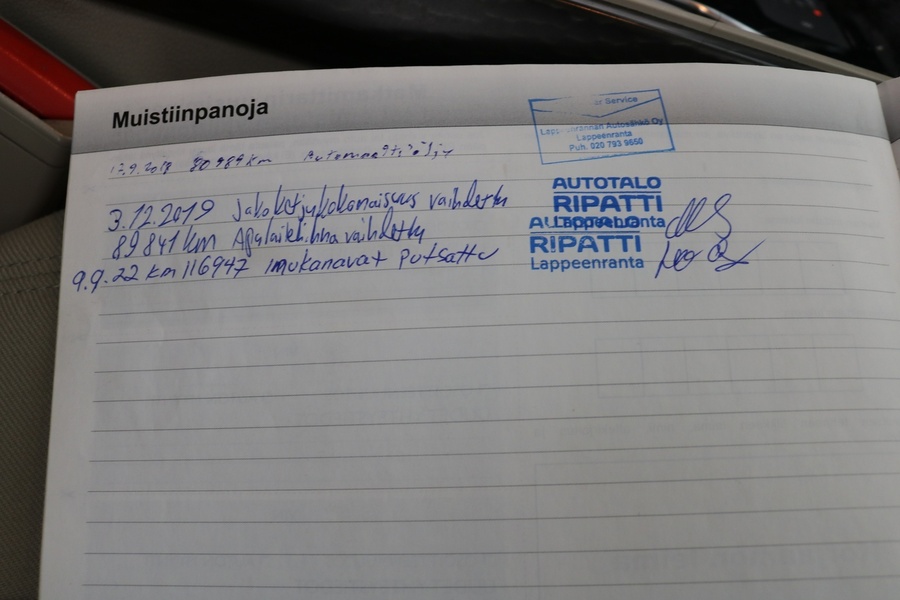 Muistiinpanoja
er Service
Lappeenrannan Autosähkö Oy
Lappeenranta
Puh. 020 793 9650
80989 km Automaattiöljy
3.12.2019 Jakoketjukokonaisuus vaihdettu
89841 km Apulaitehihna vaihdettu
9.9.22 km 116947 imukanavat putsattu
AUTOTALO
RIPATTI
Lappeenranta
AUTOTALO
RIPATTI
Lappeenranta